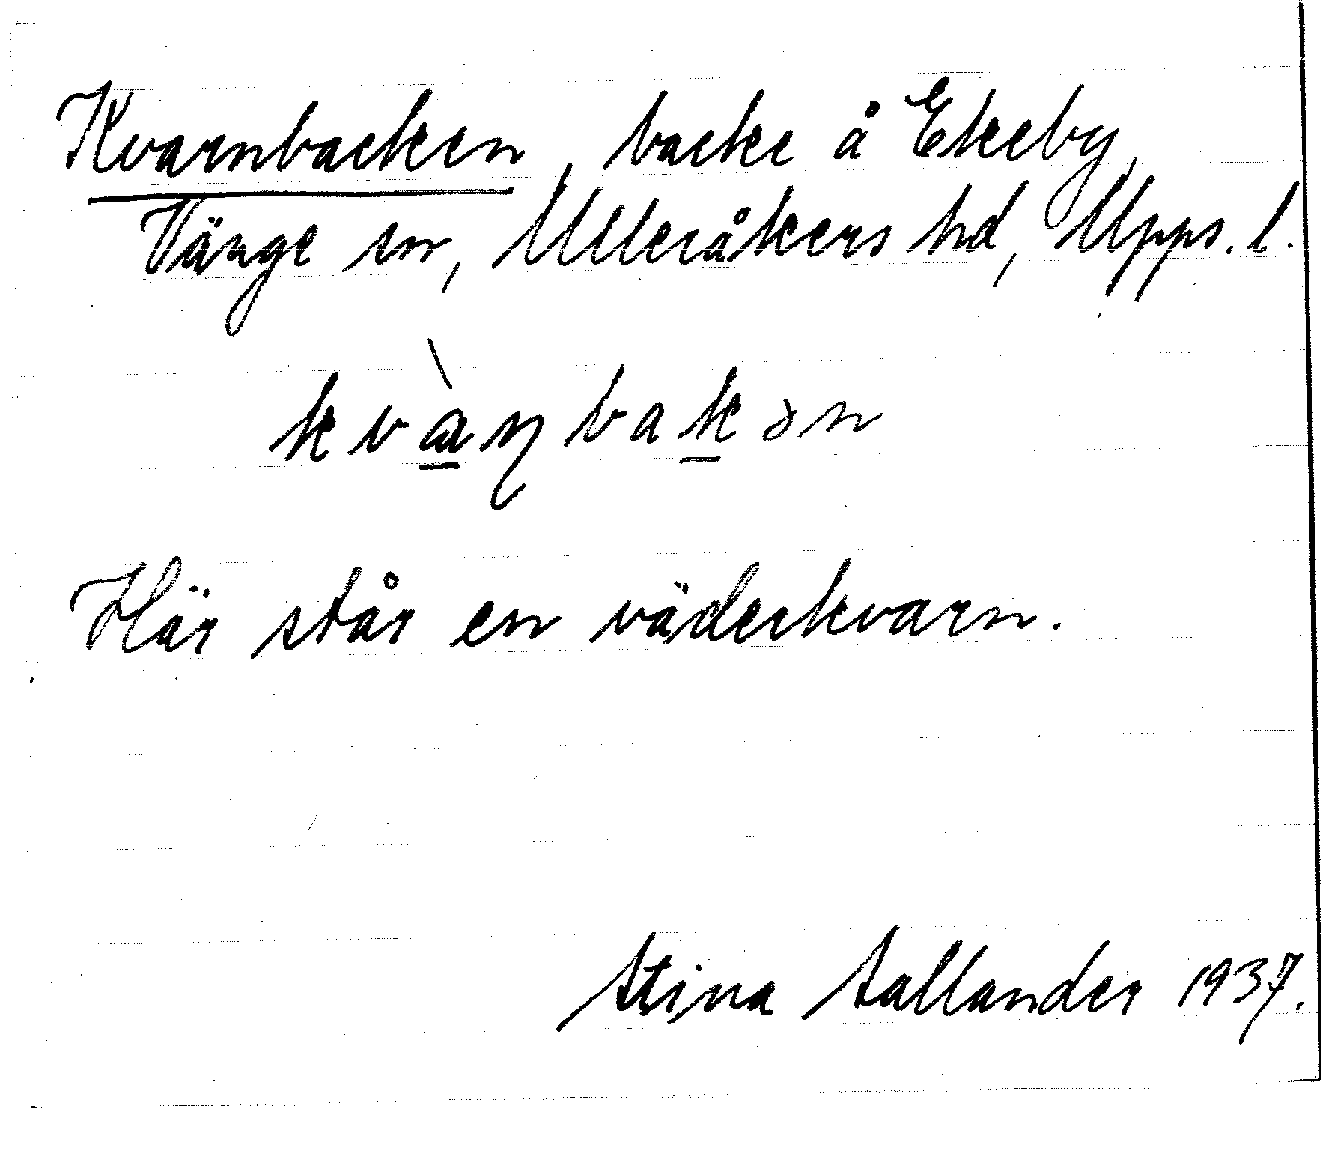 Kvarnbacken, backe å Ekeby,
Vänge sn, Ulleråkers hd, Upps. l.
kvàɳbakən
Här står en väderkvarn.
Stina Sallander 1937.